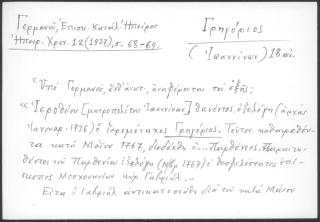 Γερμανοῦ, Ἐπισκ. Καταλ. Ἠπείρου
Ἠπειρ. Χρον. 12 (1937), σ. 68-69.
Γρηγόριος
(Ἰωαννίνων) 18 αἰ.
Ὑπὸ Γερμανοῦ, ἔνθ' ἀνωτ., ἀναφέρονται τὰ ἑξῆς:
«Ἱερόθεον [μητροπολίτην Ἰωαννίνων] θανόντος, ἐξελέγη (ἀρχὰς
Ἰανουαρ. 1736) ὁ ἱερομόναχος Γρηγόριος. Τούτου καθαιρεθέν-
τος κατὰ Μάϊον 1767, διεδέχθη ὁ... Παρθένιος. Παραιτη-
θέντος τοῦ Παρθενίου ἐξελέγη (1767) ὁ θεοφιλέστατος ἐπί-
σκοπος Μοσχονησίων κὺρ Γαβριήλ.»
Εἶτα ὁ Γαβριὴλ ἀντικατεστάθη διὰ τοῦ κατὰ Μάϊον